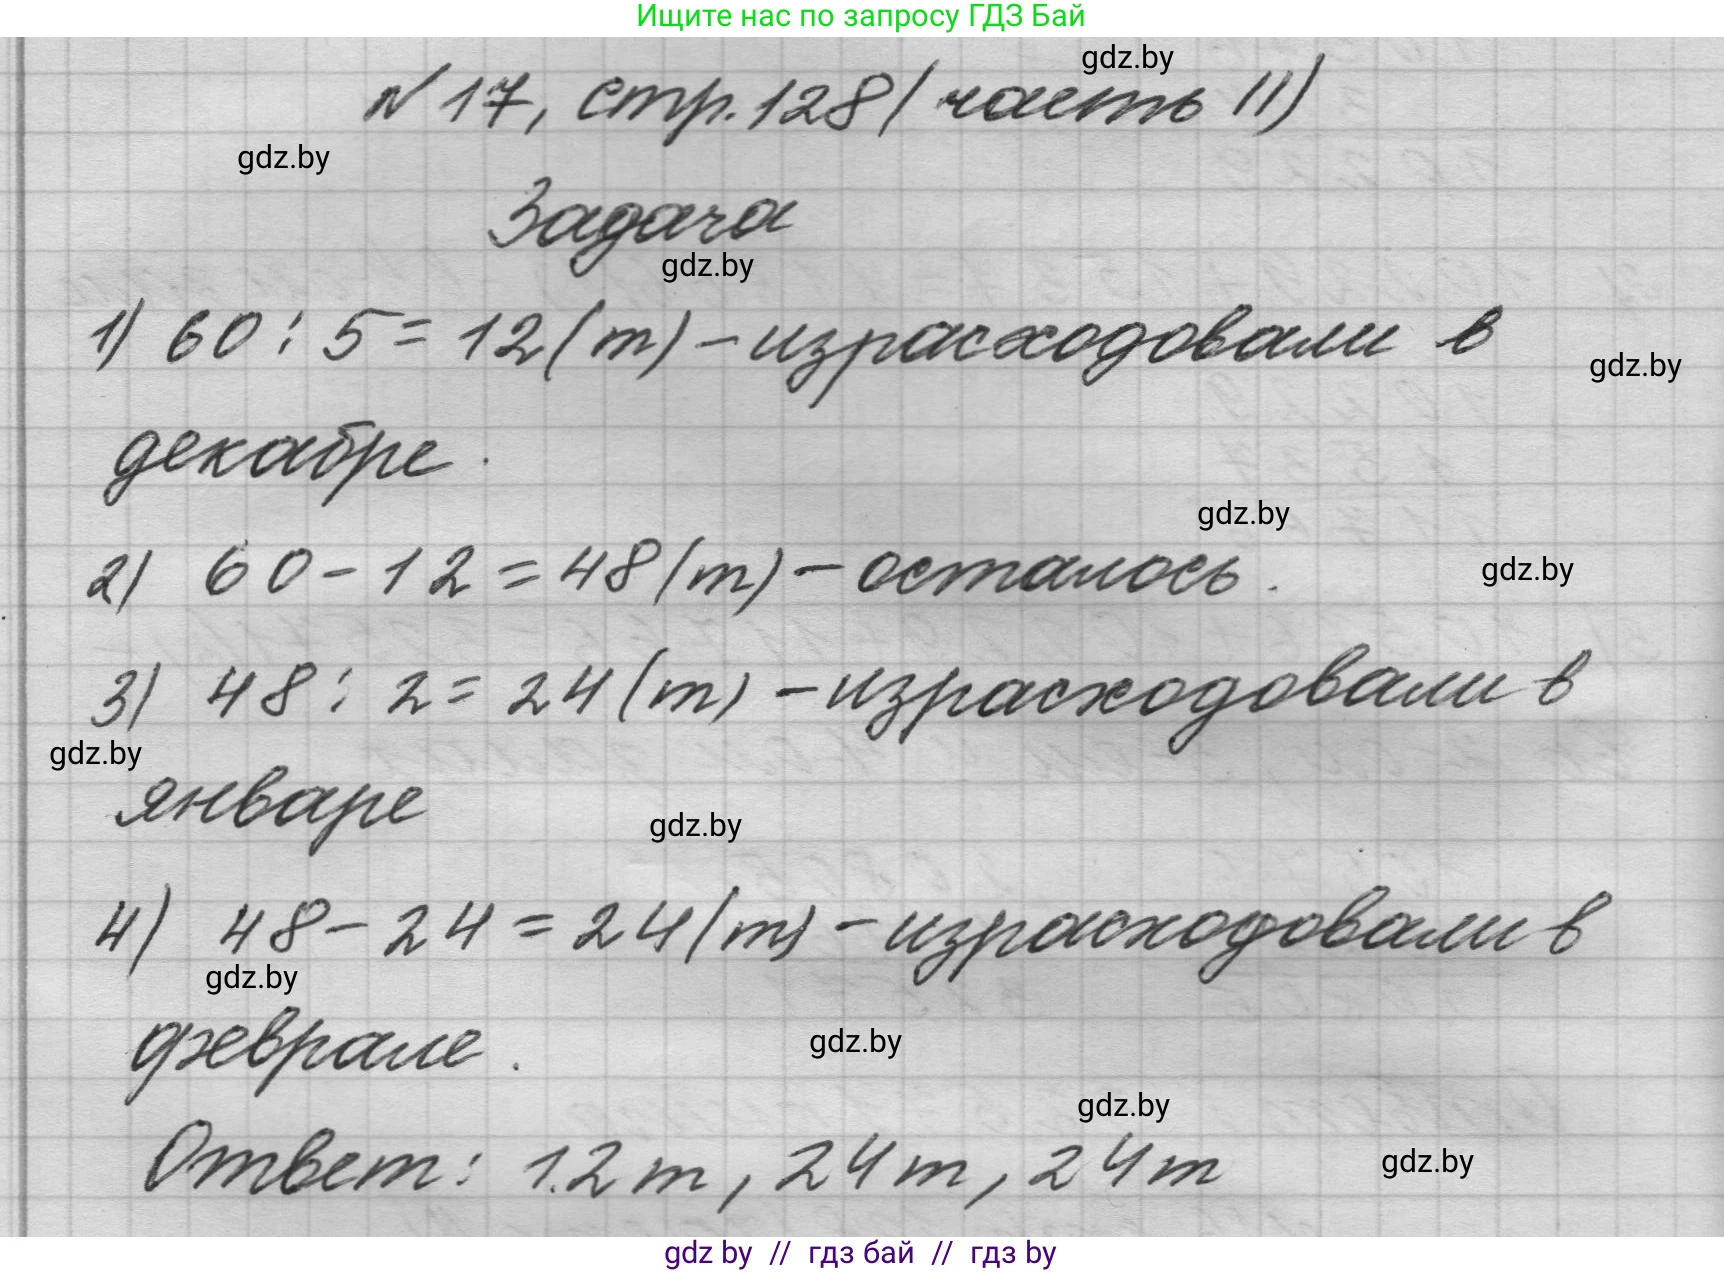 Ищите нас по запросу ГДЗ Бай
gdz.by
№17, стр.128 (часть II)
gdz.by
Задача
gdz.by
1) 60 : 5 = 12 (т) - израсходовали в
gdz.by
декабре.
gdz.by
2) 60 - 12 = 48 (т) - осталось.
gdz.by
3) 48 : 2 = 24 (т) - израсходовали в
gdz.by
январе
gdz.by
4) 48 - 24 = 24 (т) - израсходовали в
gdz.by
феврале.
gdz.by
gdz.by
Ответ: 12 т, 24 т, 24 т
gdz.by
gdz by // гдз бай // гдз by